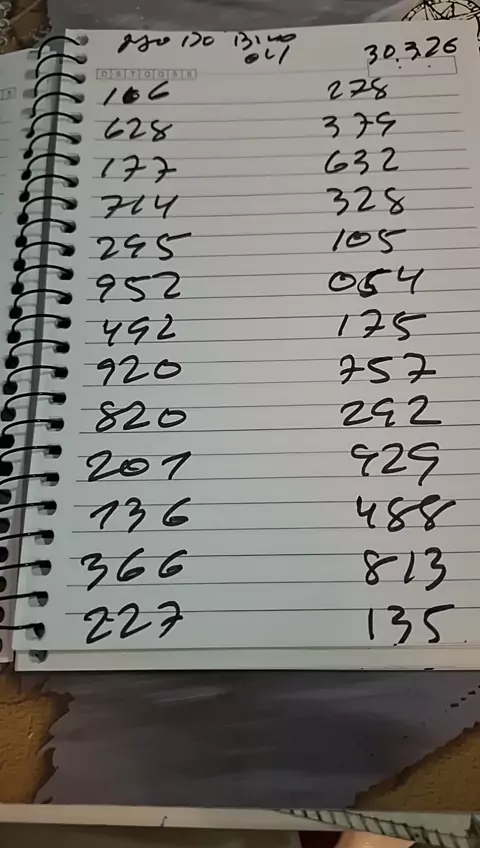 30.3.26
106 278
628 379
177 632
714 328
295 105
952 054
492 175
920 757
820 292
201 929
136 488
366 813
227 135